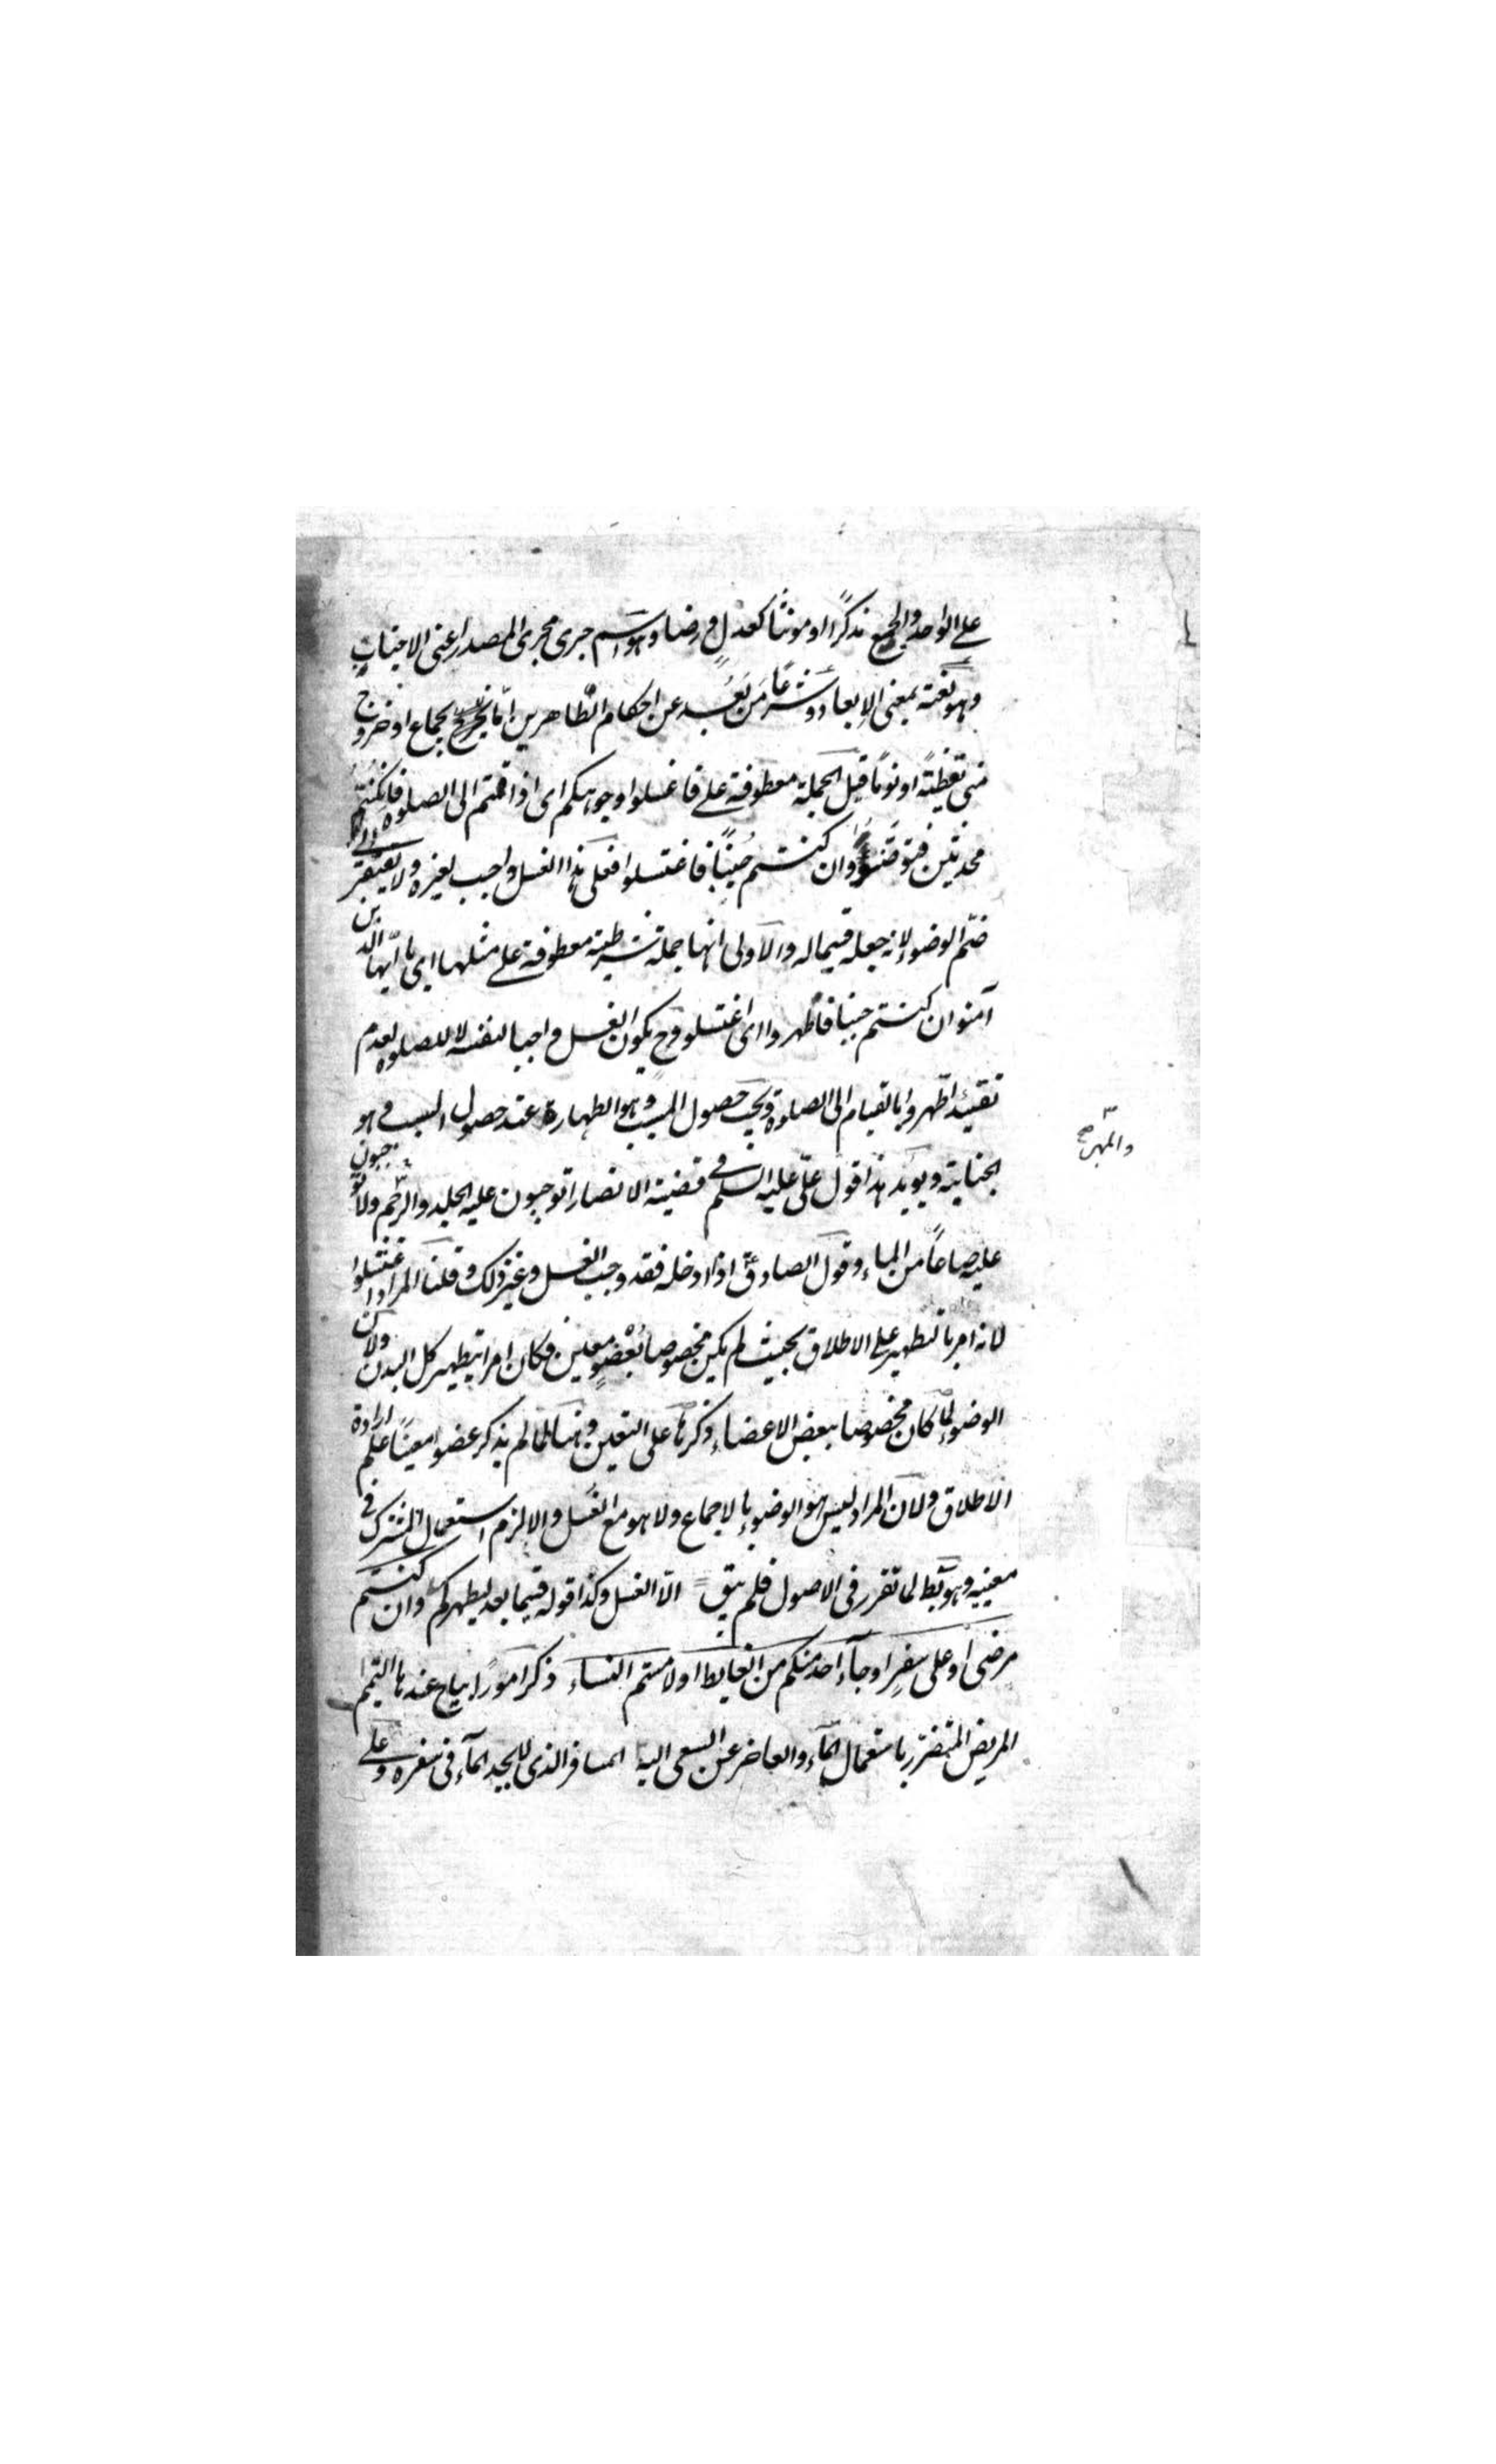 على الواحد والجمع مذكرًا او مونثًا كعدلٍ ورضا وهو اسم جرى مجرى المصدر اعنى الاجناب
وهو لغة بمعنى الإبعاد وشرعًا مَن بَعُد عن احكام الطاهرين امّا لجماع او خروج
منى يقظةً او نومًا قيل الجملة معطوفة على فاغسلوا وجوهكم اى اذا قمتم الى الصلوة فان كنتم
محدثين فتوضئوا وان كنتم جنبًا فاغتسلوا فعلى هذا الغسل واجب لغيره ولا يفتقر الى
ضمّ الوضوء لانه جعله قسيما له والاولى انها جملة شرطية معطوفة على مثلها اى يا ايّها الذين
آمنوا ان كنتم جنبا فاطهروا اى اغتسلوا وح يكون الغسل واجبا لنفسه لا للصلوة لعدم
تقييد اطّهروا بالقيام الى الصلوة ويجب حصول المسبب وهو الطهارة عند حصول السبب وهو
الجنابة ويويّد هذا قول علىّ عليه السلم فى قضية الانصار اتوجبون عليه الجلد والرّجم ولا توجبون
والمهر صح
عليه صاعًا من الماء وقول الصادق ع اذا ادخله فقد وجب الغسل وغير ذلك وقلنا المراد اغتسلوا
لانه امر بالتطهير على الاطلاق بحيث لم يكن مخصوصا بعُضوٍ معين فكان امرا بتطهير كل البدن ولان
الوضوء لمّا كان مخصوصا ببعض الاعضاء ذكرها على التعين وهنا لما لم يذكر عضوا معينًا علم ارادة
الاطلاق ولان المراد ليس هو الوضوء بالاجماع ولا هو مع الغُسل والا لزم استعمال المشترك فى
معنييه وهو بَط لما تقرر فى الاصول فلم يبق الّا الغسل وكذا قوله فيما بعد ليطهركم وان كنتم
مرضى او على سفرٍ او جآء احد منكم من الغايط او لامستم النساء ذكر امورًا يباح عندها التيمم
المريض المتضرّر باستعمال المآء والعاجز عن السعى اليه المسافر الذى لا يجد المآء فى سفره وعلى